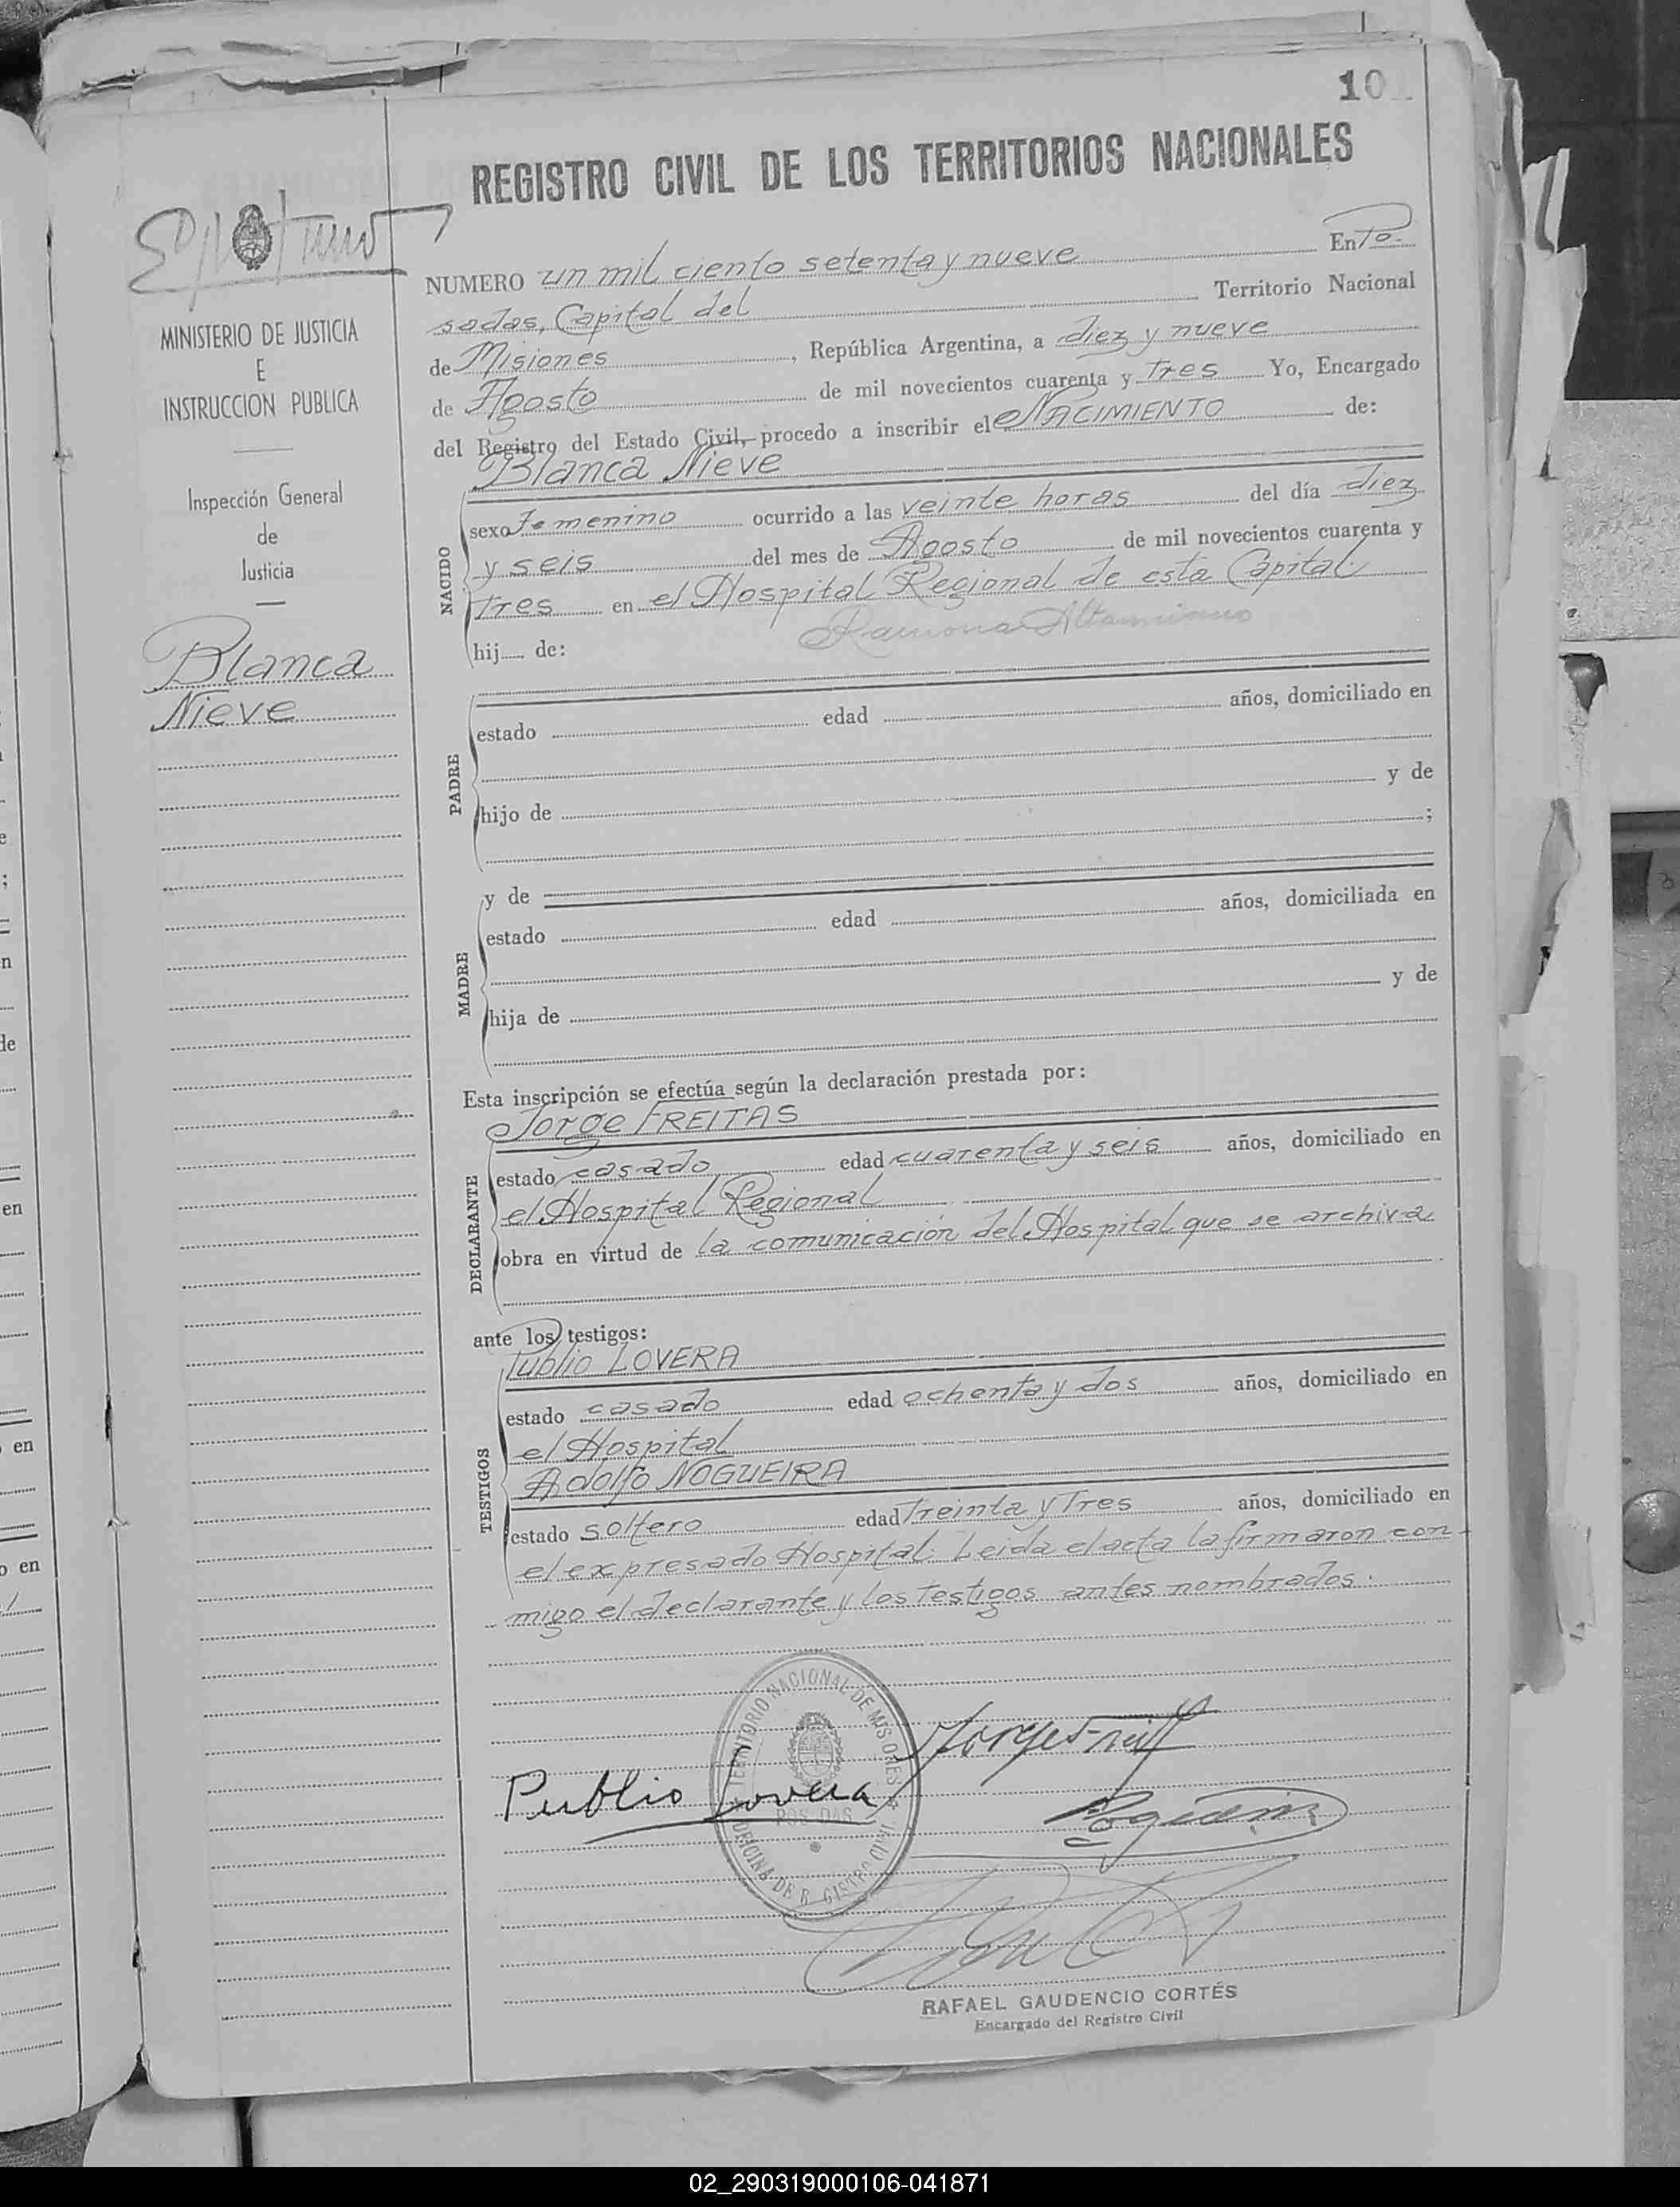 10
REGISTRO CIVIL DE LOS TERRITORIOS NACIONALES
MINISTERIO DE JUSTICIA
E
INSTRUCCION PUBLICA
Inspección General
de
Justicia
Blanca
Nieve
NUMERO un mil ciento setenta y nueve En Po-
sadas, Capital del Territorio Nacional
de Misiones, República Argentina, a diez y nueve
de Agosto de mil novecientos cuarenta y tres Yo, Encargado
del Registro del Estado Civil, procedo a inscribir el NACIMIENTO de:
Blanca Nieve
NACIDO
sexo femenino ocurrido a las veinte horas del día diez
y seis del mes de Agosto de mil novecientos cuarenta y
tres en el Hospital Regional de esta Capital.
Ramona Altamirano
hij de:
PADRE
estado edad años, domiciliado en
hijo de y de
;
y de
MADRE
estado edad años, domiciliada en
hija de y de
Esta inscripción se efectúa según la declaración prestada por:
Jorge FREITAS
DECLARANTE
estado casado edad cuarenta y seis años, domiciliado en
el Hospital Regional
obra en virtud de la comunicación del Hospital que se archiva
ante los testigos:
Publio LOVERA
TESTIGOS
estado casado edad ochenta y dos años, domiciliado en
el Hospital
Adolfo NOGUEIRA
estado soltero edad treinta y tres años, domiciliado en
el expresado Hospital. Leida el acta la firmaron con-
migo el declarante y los testigos antes nombrados.
TERRITORIO NACIONAL DE MISIONES
POSADAS
OFICINA DE REGISTRO CIVIL
Publio Lovera
RAFAEL GAUDENCIO CORTÉS
Encargado del Registro Civil
02_290319000106-041871